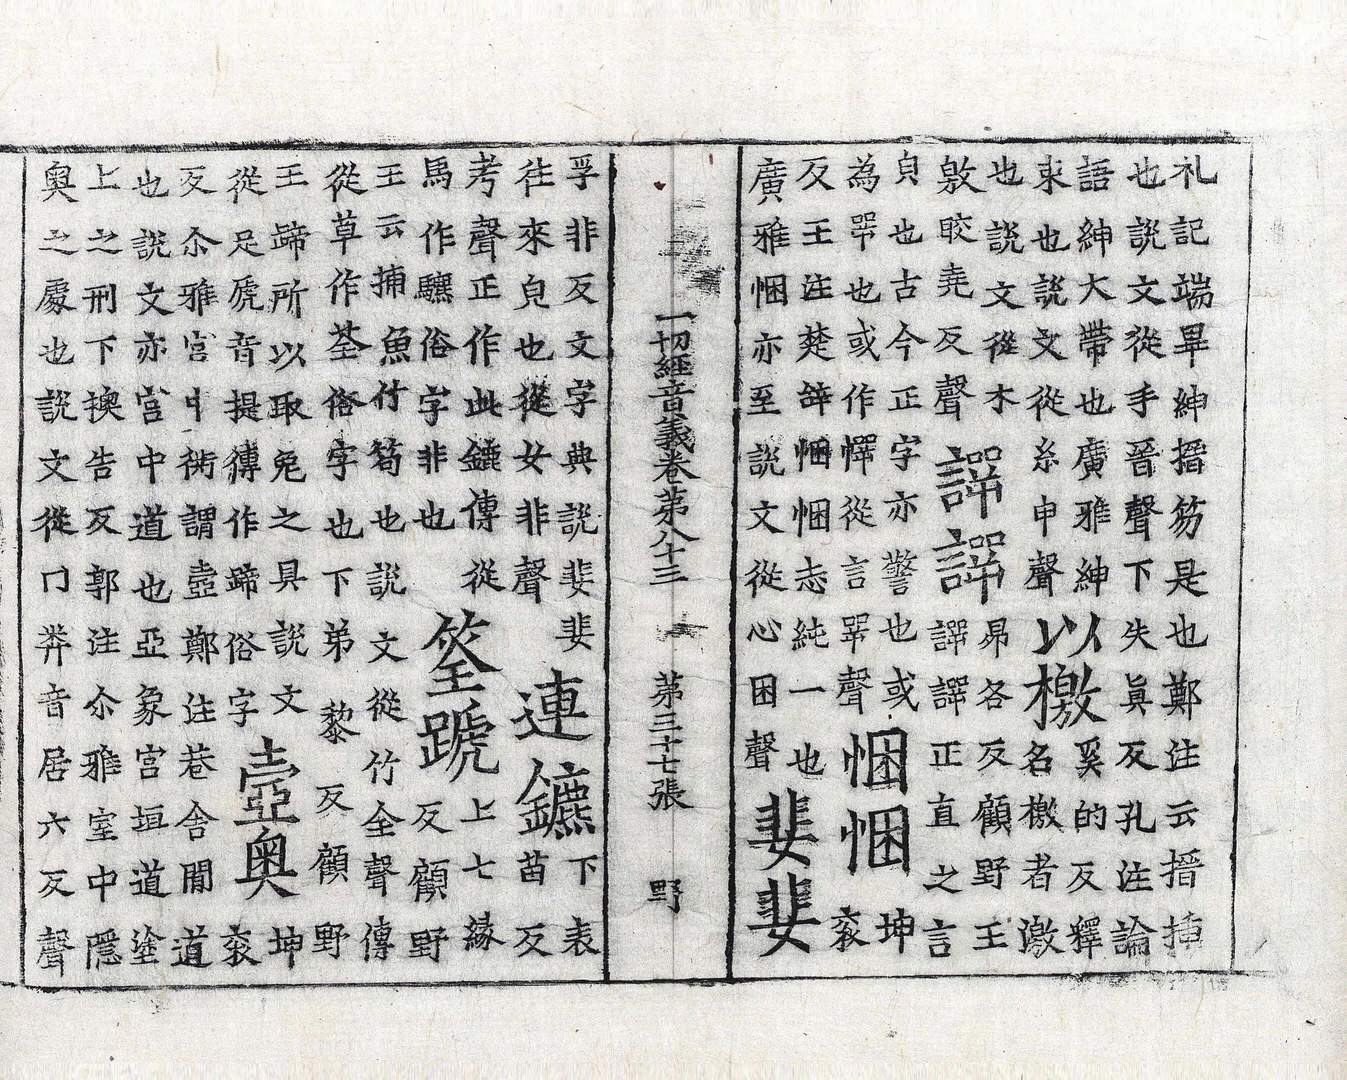 礼記端畢紳搢笏是也鄭注云搢揷
也說文從手晉聲下失眞反孔注論
語紳大帶也廣雅紳
束也說文從糸申聲
以檄
奚的反釋
名檄者激
也說文從木
敫皎堯反聲
諤諤
昴各反顧野王
諤諤正直之言
皃也古今正字亦警也或
為咢也或作愕從言咢聲
悃悃
坤
衮
反王注楚辝悃悃志純一也
廣雅悃亦至說文從心困聲
婓婓
一切經音義卷第八十三 第三十七張 野
孚非反文字典說婓婓
往來皃也從女非聲
連鑣
下表
苗反
考聲正作此鑣傳從
馬作驤俗字非也
筌蹏
上七緣
反顧野
王云捕魚竹笱也說文從竹全聲傳
從草作荃俗字也下弟黎反顧野
王蹄所以取兔之具說文
從足虒音提傳作蹄俗字
壼奧
坤
衮
反尒雅宮中衖謂壼鄭注巷舍閒道
也說文亦宮中道也亞象宮垣道塗
上之刑下墺告反郭注尒雅室中隱
奧之處也說文從冂𢍏音居六反聲